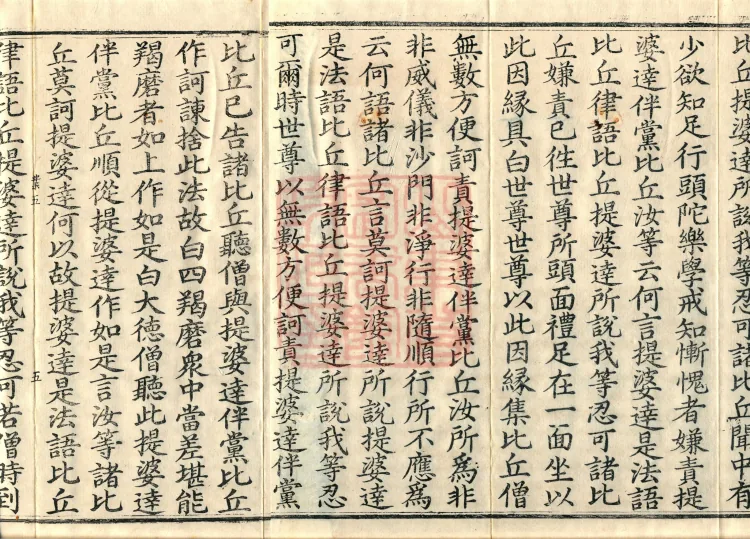 比丘提婆達所說我等忍可諸比丘聞中有
少欲知足行頭陀樂學戒知慚愧者嫌責提
婆達伴黨比丘汝等云何言提婆達是法語
比丘律語比丘提婆達所說我等忍可諸比
丘嫌責已徃世尊所頭面禮足在一面坐以
此因緣具白世尊世尊以此因緣集比丘僧
無數方便訶責提婆達伴黨比丘汝所為非
非威儀非沙門非淨行非隨順行所不應為
云何語諸比丘言莫訶提婆達所說提婆達
是法語比丘律語比丘提婆達所說我等忍
可爾時世尊以無數方便訶責提婆達伴黨
比丘已告諸比丘聽僧與提婆達伴黨比丘
作訶諫捨此法故白四羯磨衆中當差堪能
羯磨者如上作如是白大德僧聽此提婆達
伴黨比丘順從提婆達作如是言汝等諸比
丘莫訶提婆達何以故提婆達是法語比丘
五
律語比丘提婆達所說我等忍可若僧時到